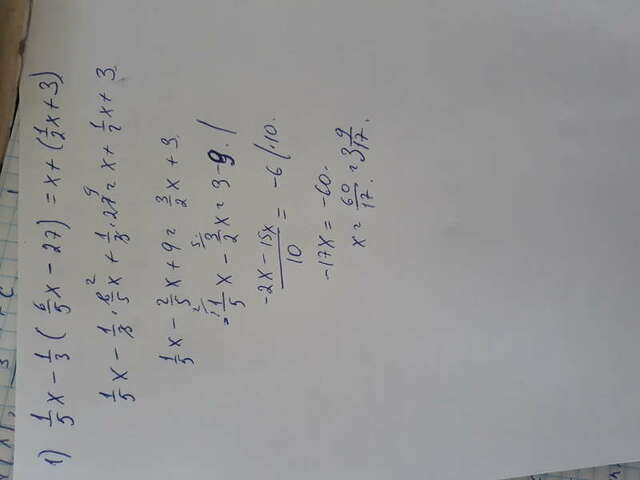 1) 1/5 x - 1/3 (6/5 x - 27) = x + (1/2 x + 3)
1/5 x - 1/3 · 6/5 x + 1/3 · 27 = x + 1/2 x + 3
1/5 x - 2/5 x + 9 = 3/2 x + 3
- 1/5 x - 3/2 x = 3 - 9. /
(-2x - 15x)/10 = -6 / ·10.
-17x = -60.
x = 60/17 = 3 9/17.